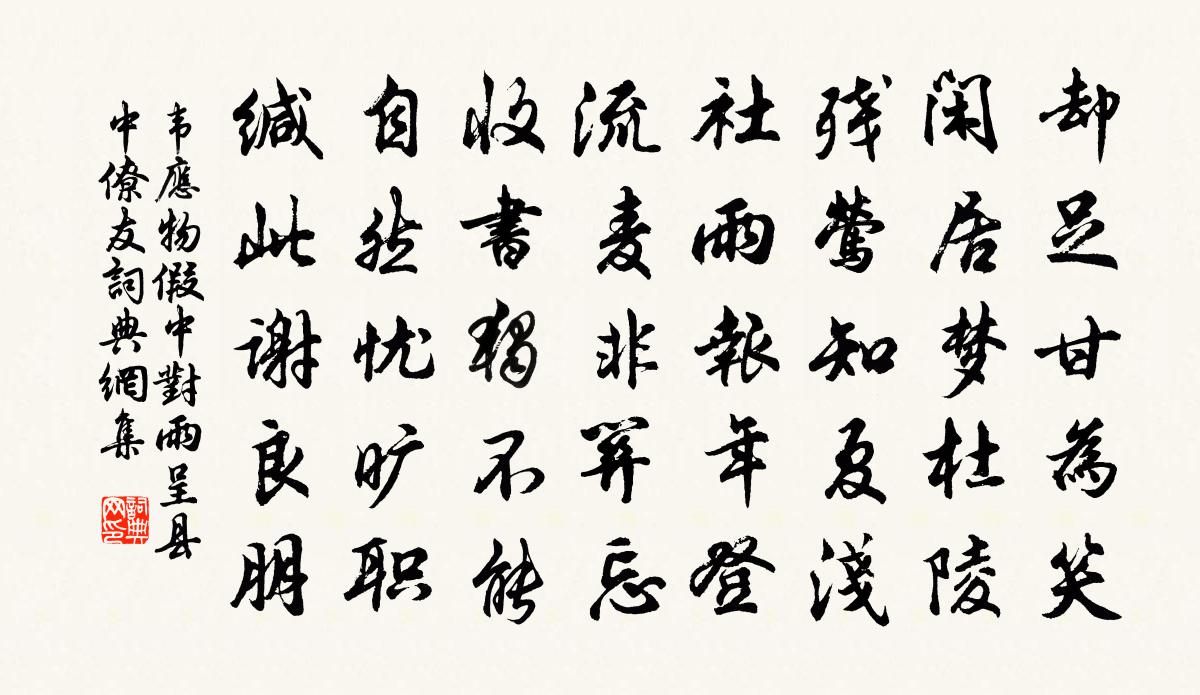 却足甘為笑
閑居梦杜陵
残鶯知夏淺
社雨報年登
流麦非關忘
收書獨不能
自然忧旷职
缄此谢良朋
韦應物假中對雨呈县
中僚友詞典網集
詞典
网印